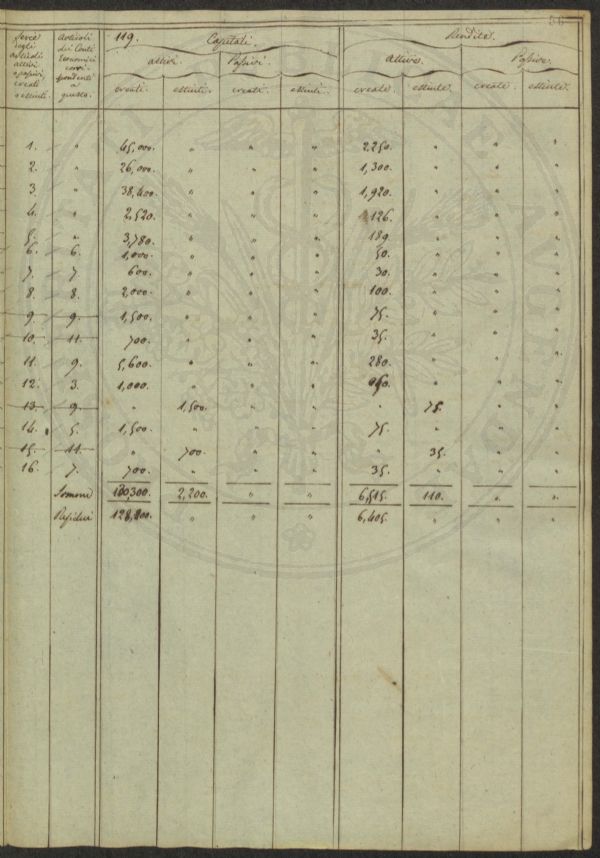 56
119.
Capitali.
Rendite.
Serie degli articoli attivi e passivi, creati e estinti.
Articoli dei Conti Economici corrispondenti a questo.
attivi.
Passivi.
Attive.
Passive.
creati. estinti. creati. estinti. create. estinte. create. estinte.
1. " 45,000. " " " 2,250. " " "
2. " 26,000. " " " 1,300. " " "
3. " 38,400. " " " 1,920. " " "
4. " 2,520. " " " 126. " " "
5. " 3,780. " " " 189. " " "
6. 6. 1,000. " " " 50. " " "
7. 7. 600. " " " 30. " " "
8. 8. 2,000. " " " 100. " " "
9. 9. 1,500. " " " 75. " " "
10. 11. 700. " " " 35. " " "
11. 9. 5,600. " " " 280. " " "
12. 3. 1,000. " " " 50. " " "
13. 9. " 1,500. " " " 75. " "
14. 5. 1,500. " " " 75. " " "
15. 11. " 700. " " " 35. " "
16. 7. 700. " " " 35. " " "
Somme 130,300. 2,200. " " 6,515. 110. " "
Residui 128,100. " " " 6,405. " " "